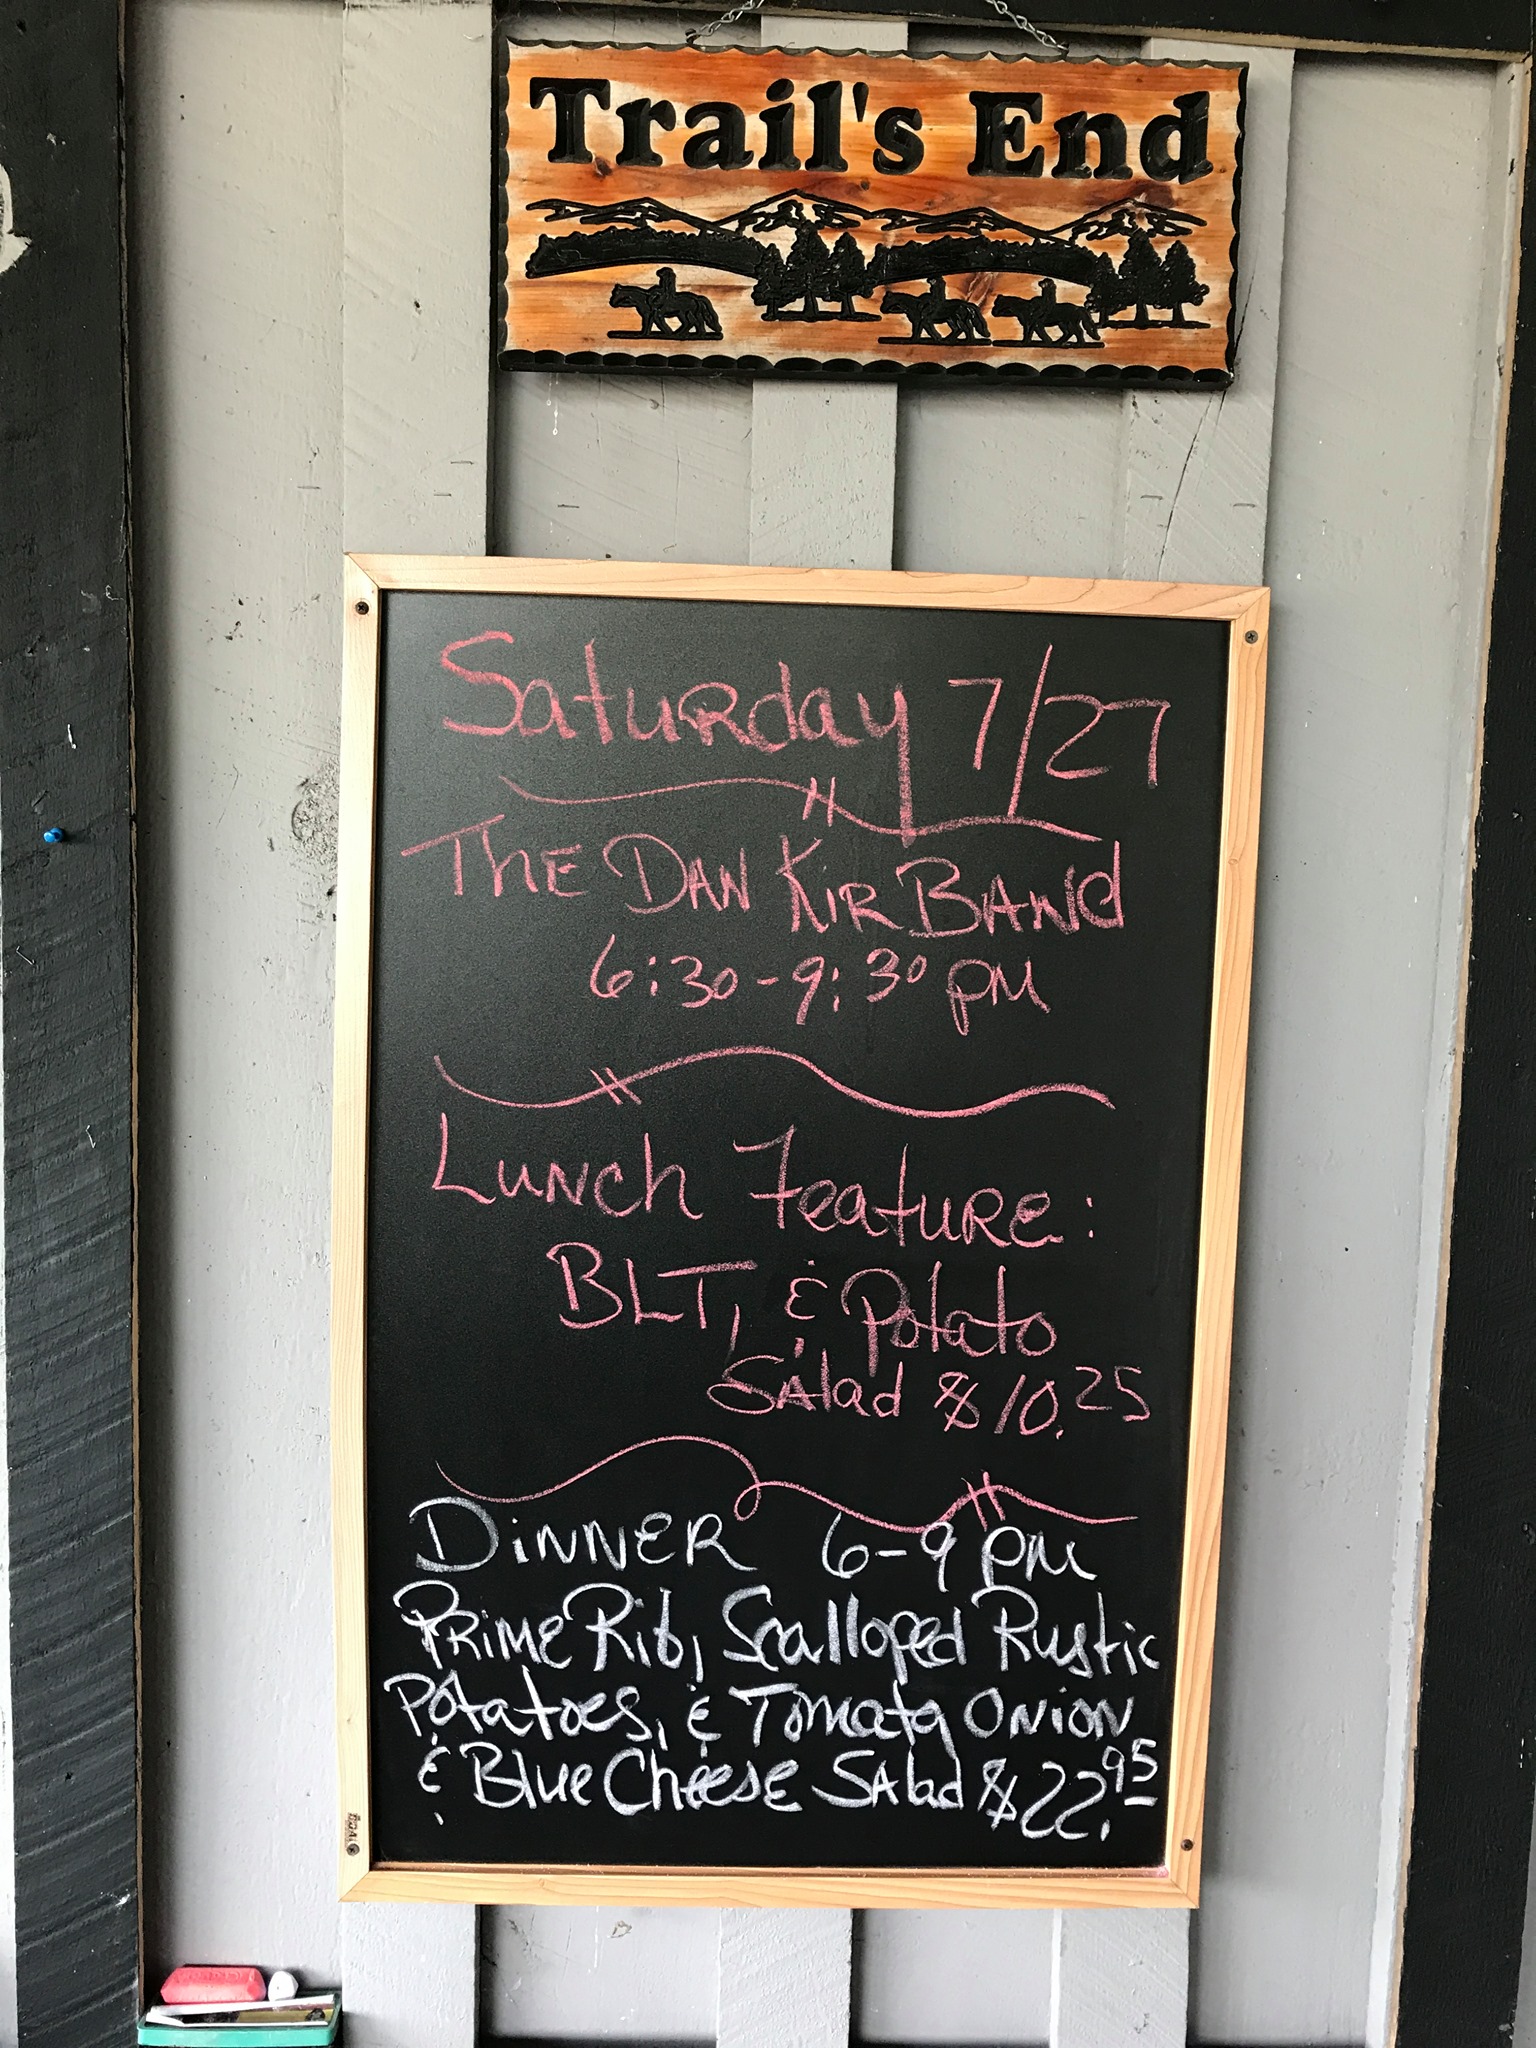 Trail's End
Saturday 7/27
The Dan Kir Band
6:30-9:30 pm
Lunch Feature:
BLT, & Potato
Salad $10.25
Dinner 6-9 pm
Prime Rib, Scalloped Rustic
Potatoes, & Tomato Onion
& Blue Cheese Salad $22.95